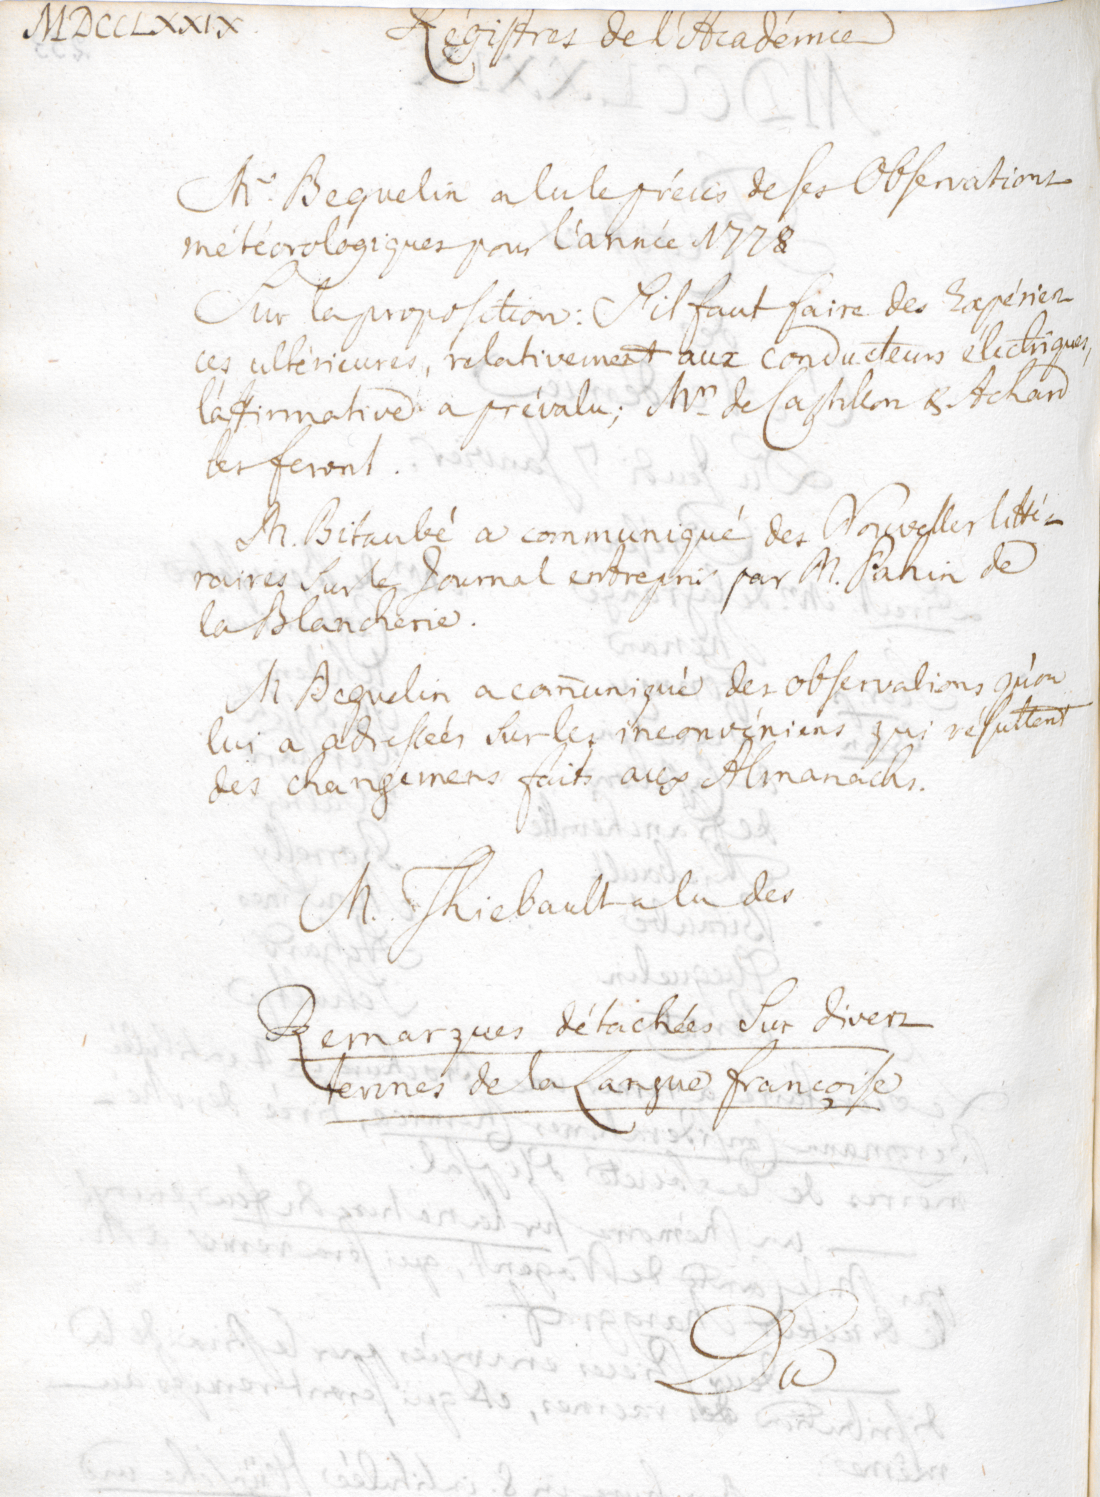 MDCCLXXIX.
Régistres de l'Académie
Mr. Beguelin a lu le précis de ses Observations
météorologiques pour l'année 1778
Sur la proposition: S'il faut faire des Expérien-
ces ultérieures, relativement aux conducteurs électriques,
l'affirmative a prévalu; Mrs de Castillon & Achard
les feront.
M. Bitaubé a communiqué des Nouvelles litté-
raires sur le Journal entrepris par M. Pahin de
la Blancherie.
M Beguelin a com̄uniqué des observations qu'on
lui a adressées sur les inconvéniens qui résultent
des changemens faits aux Almanachs.
M. Thiebault a lu des
Remarques détachées sur divers
termes de la Langue françoise
Du